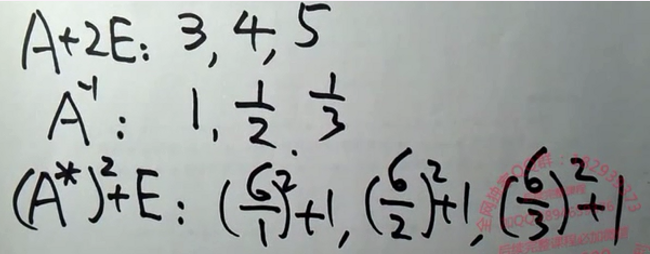 A+2E: 3, 4, 5
A⁻¹: 1, 1/2, 1/3
(A*)²+E: (6/1)²+1, (6/2)²+1, (6/3)²+1